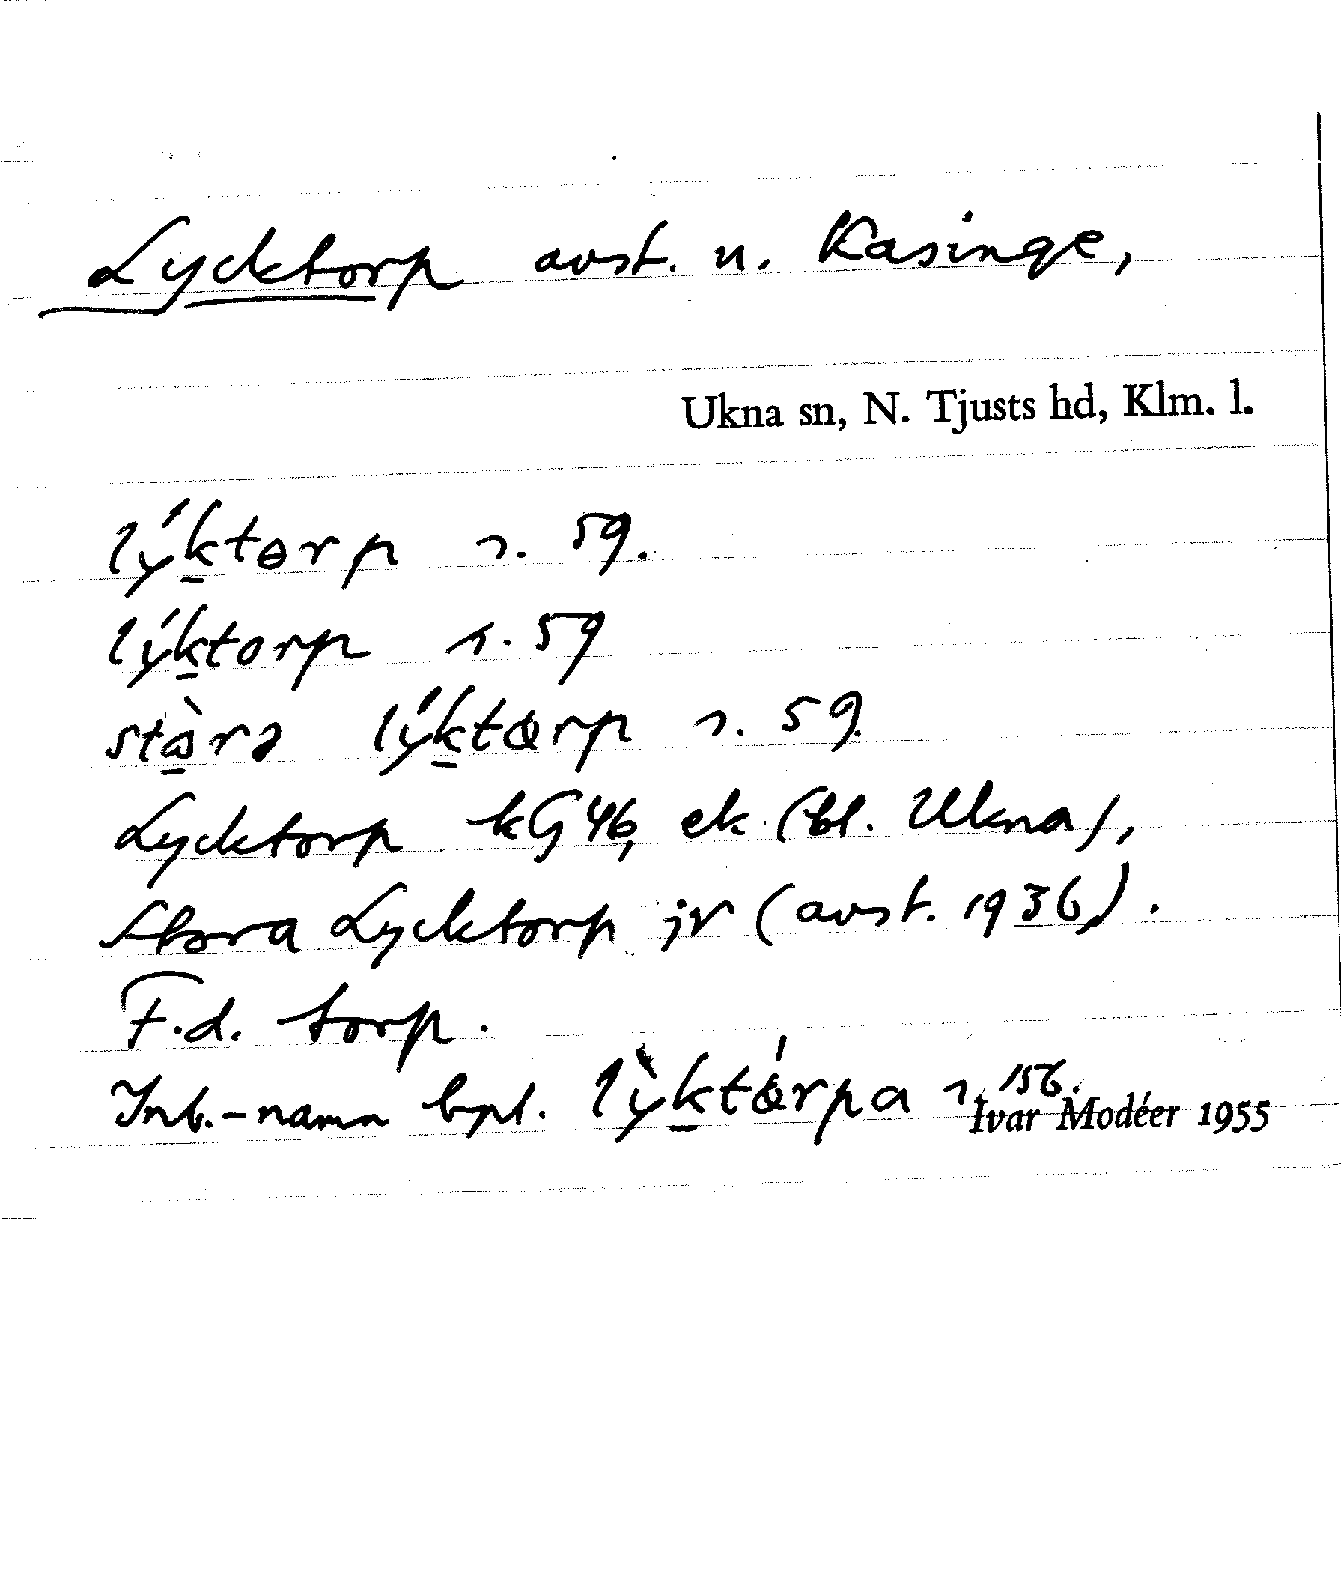 Lycktorp avst. u. Kasinge,
Ukna sn, N. Tjusts hd, Klm. l.
lýktɵrp s. 59.
lýktorp s. 59
stòra lýktɵrp s. 59.
Lycktorp kG 46, ek (bl. Ukna),
Stora Lycktorp jr (avst. 1936).
F.d. torp.
Inb.-namn bpl. lỳktɵ́rpa s. 156.
Ivar Modéer 1955